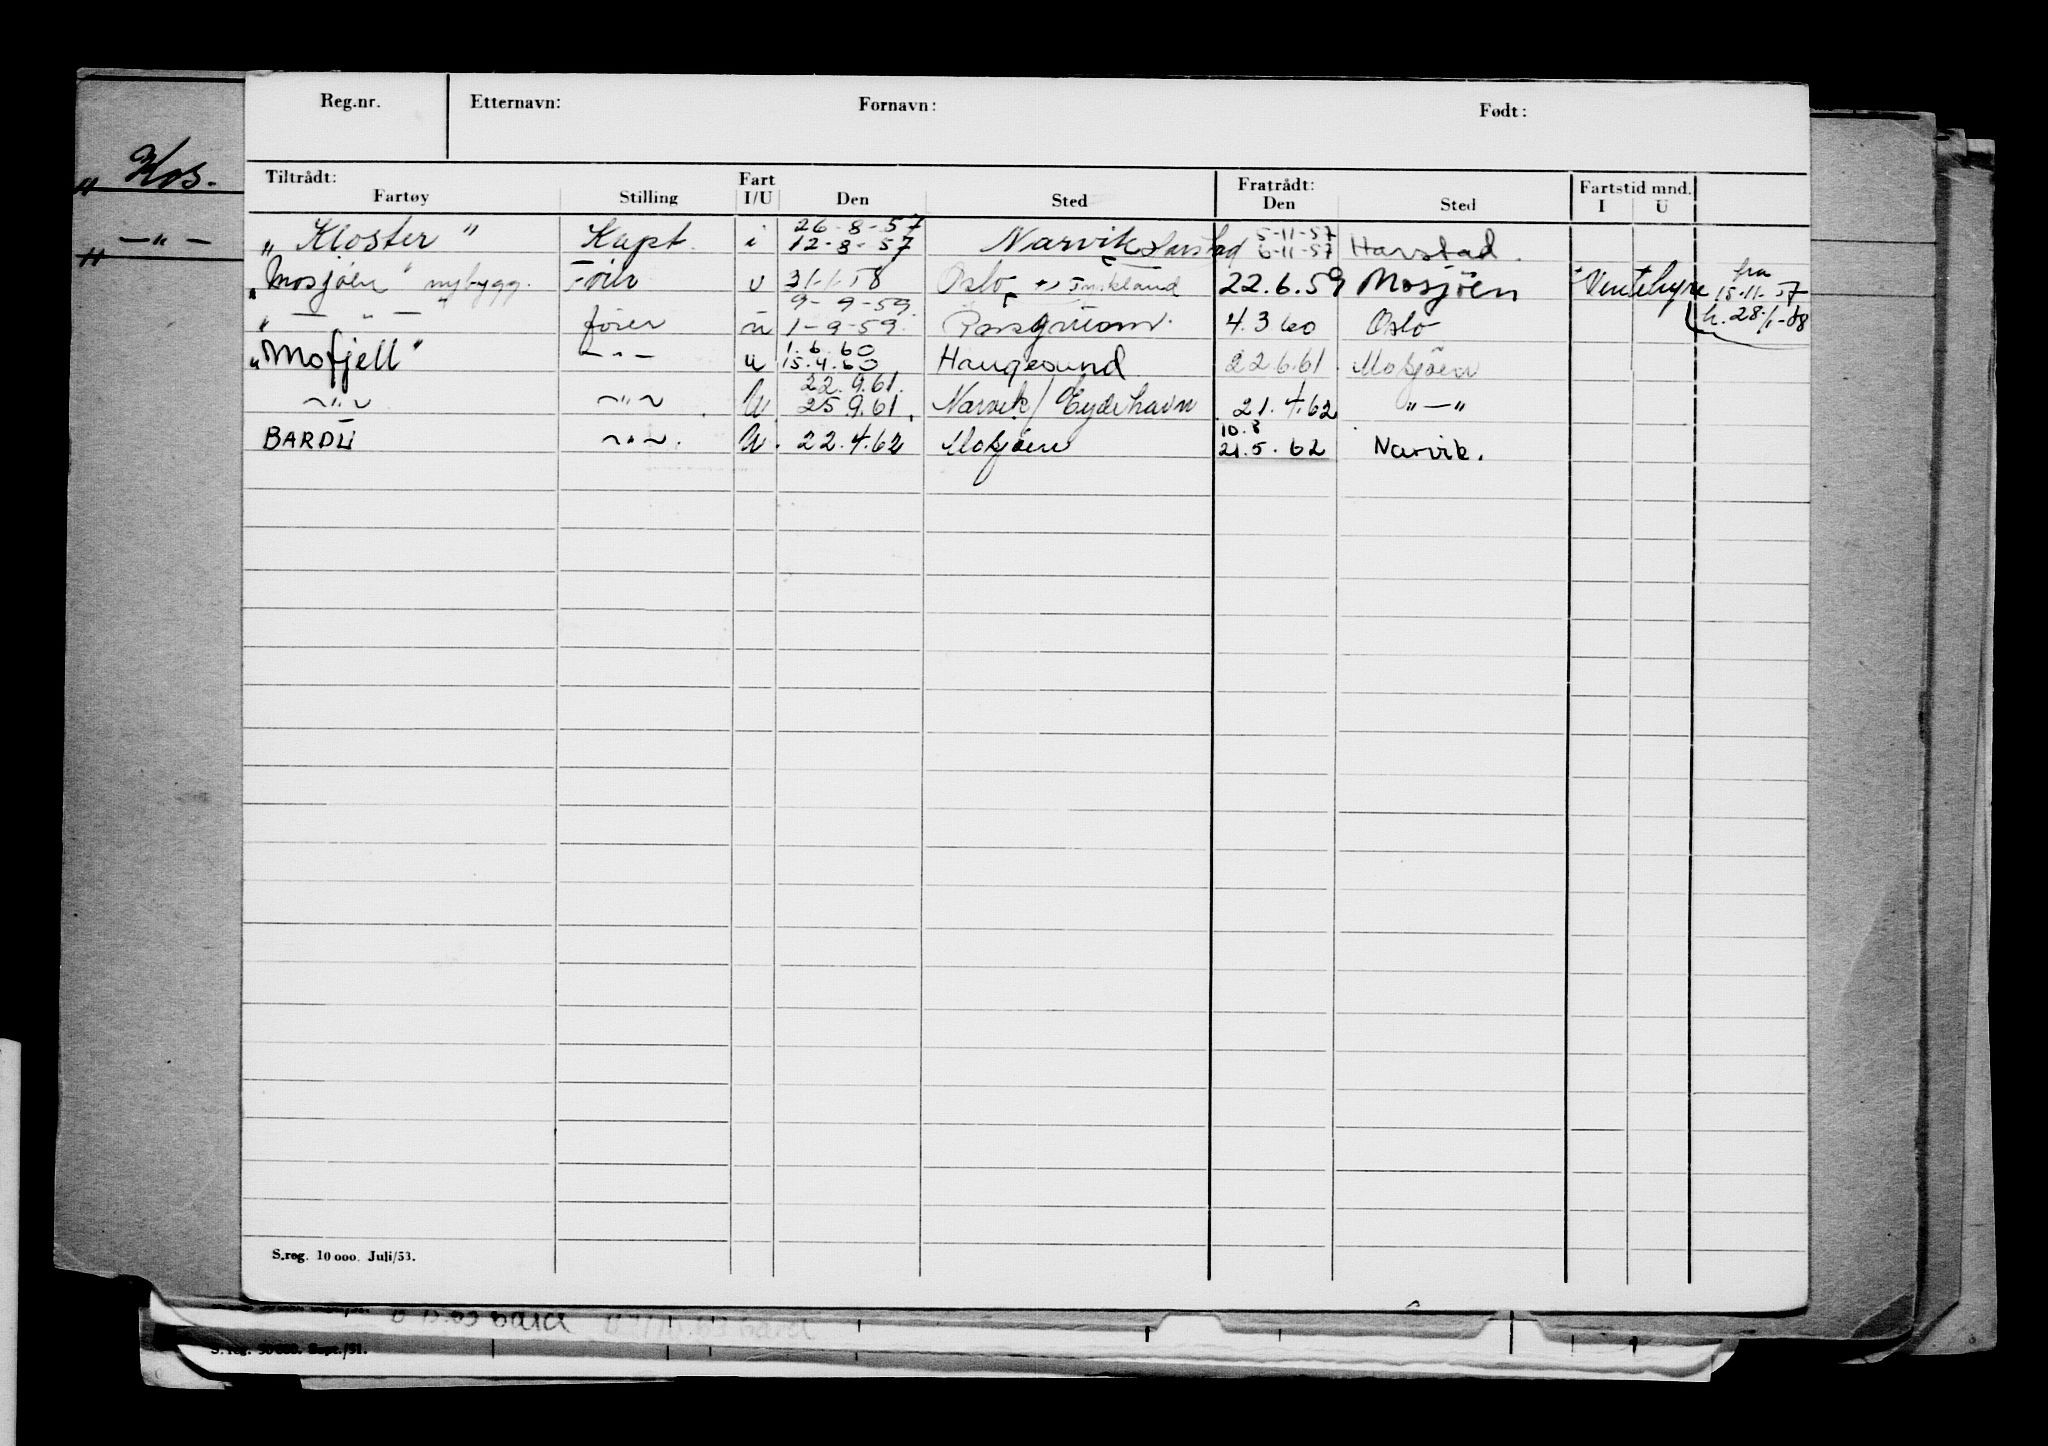 Reg.nr. Etternavn: Fornavn: Født:
„ Kos.
Tiltrådt: Fart Fratrådt: Fartstid mnd.
Fartøy Stilling I/U Den Sted Den Sted I U
26-8-57 5-11-57
„ Kloster " Kapt. i 12-8-57 Narvik Harstad 6-11-57 Harstad.
„ — " —
„ Mosjøen " nybygg. Fører u 31-1-58 Oslo 22.6.59 Mosjöen Ventehyre fra 15.11.57
9-9-59.
„ — " — fører u 1-9-59. 4.3 60 Oslo h. 28/1-58
1.6.60
„ Mofjell " — " — u 15.4.60 Haugesund 22.6.61. Mosjöen
22.9.61.
~ " ~ ~ " ~ U 25.9.61. Narvik/Eydehavn 21.4.62 " — "
10.8
BARDU ~ " ~. U. 22.4.62 Mosjöen 21.5.62 Narvik.
S.reg. 10 000. Juli/53.
S. reg. 50 000. Sept./51.